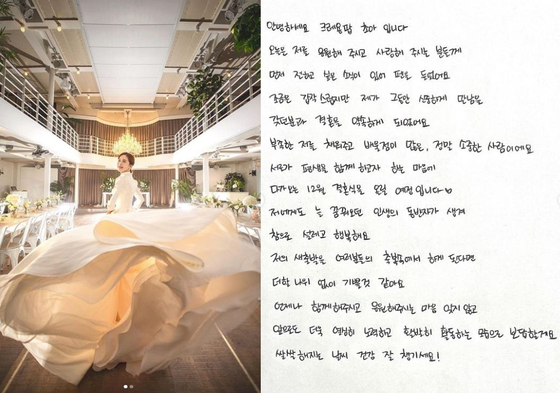 안녕하세요 크레용팝 초아 입니다
오늘은 저를 응원해 주시고 사랑해 주시는 분들께
먼저 전하고 싶은 소식이 있어 펜을 들었어요
조금은 갑작스럽지만 제가 그동안 신중하게 만남을
갖던분과 결혼을 약속하게 되었어요
부족한 저를 채워주고 배울점이 많은, 정말 소중한 사람이에요
서로가 평생을 함께 하고자 하는 마음에
다가오는 12월 결혼식을 올릴 예정입니다♡
저에게도 늘 꿈꿔왔던 인생의 동반자가 생겨
참으로 설레고 행복해요
저의 새출발을 여러분들의 축복속에서 하게 된다면
더할 나위 없이 기쁠것 같아요
언제나 함께해주시고 응원해주시는 마음 잊지 않고
앞으로도 더욱 열심히 노력하고 활발히 활동하는 모습으로 보답할게요
쌀쌀해지는 날씨 건강 잘 챙기세요!